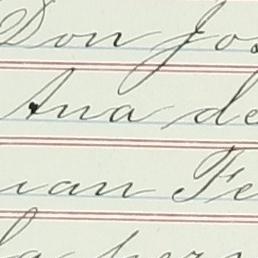 Don Jos
Ana de
ian Fe